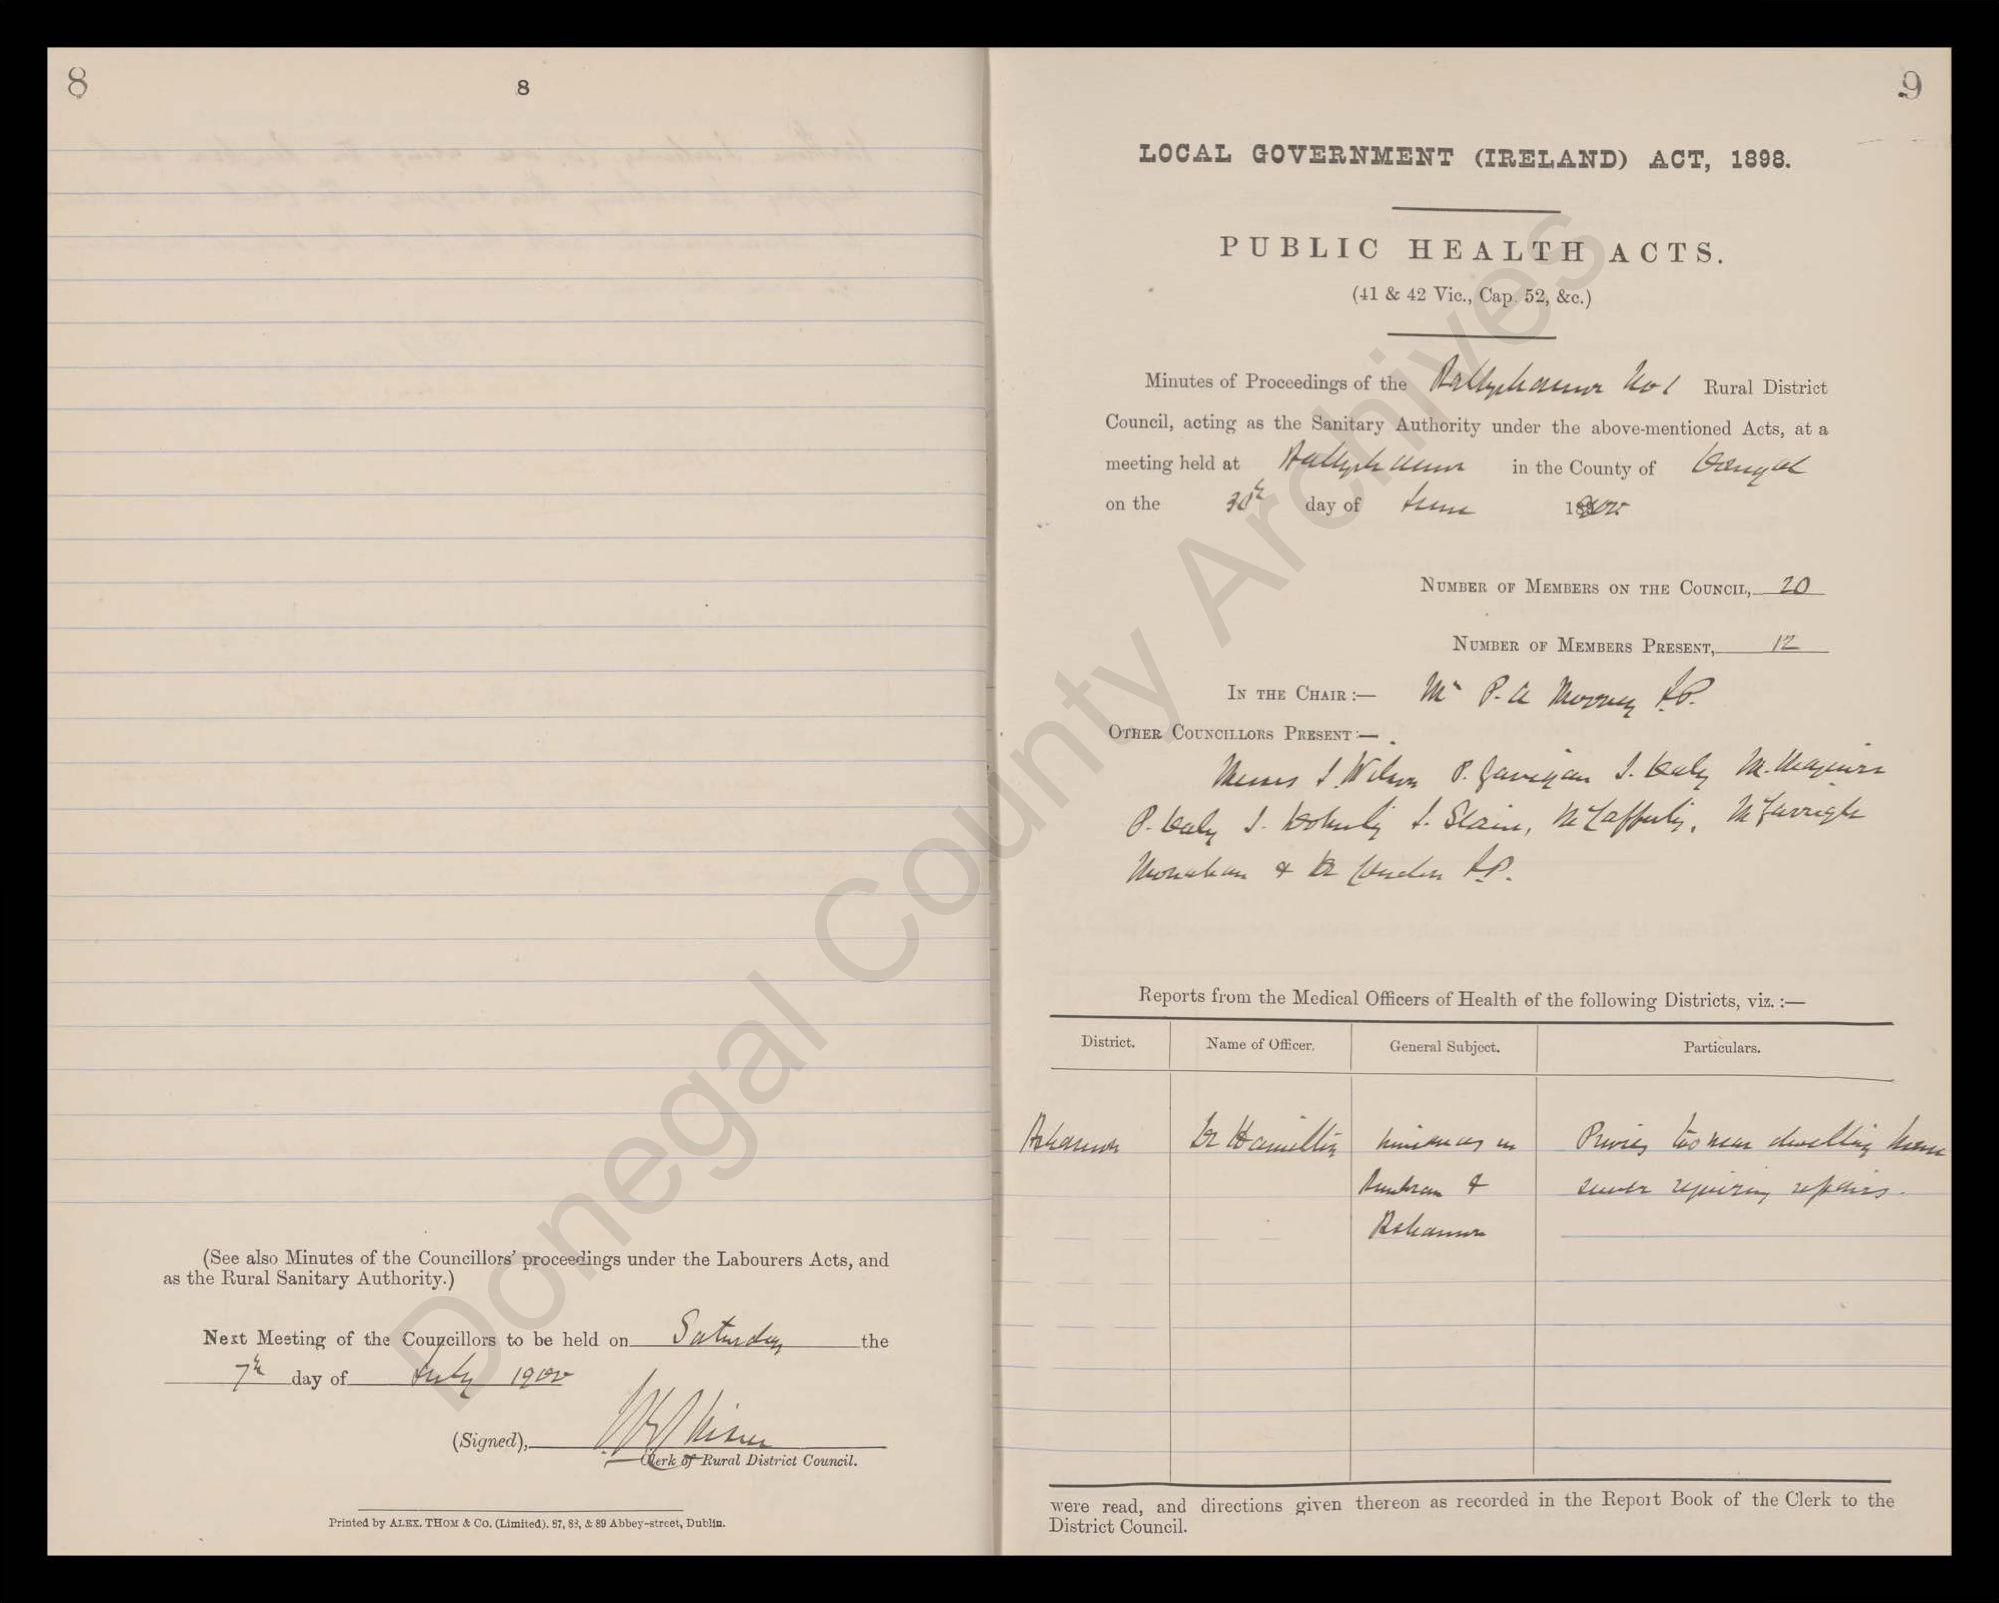 8
8
(See also Minutes of the Councillors' proceedings under the Labourers Acts, and
as the Rural Sanitary Authority.)
Next Meeting of the Councillors to be held on Saturday the
7th day of July 1900
(Signed),
Clerk of Rural District Council.
Printed by ALEX. THOM & CO. (Limited), 87, 88, & 89 Abbey-street, Dublin.
9
LOCAL GOVERNMENT (IRELAND) ACT, 1898.
PUBLIC HEALTH ACTS.
(41 & 42 Vic., Cap. 52, &c.)
Minutes of Proceedings of the Ballyshannon No 1 Rural District
Council, acting as the Sanitary Authority under the above-mentioned Acts, at a
meeting held at Ballyshannon in the County of Donegal
on the 30th day of June 1900
NUMBER OF MEMBERS ON THE COUNCIL, 20
NUMBER OF MEMBERS PRESENT, 12
IN THE CHAIR :— Mr P. A Mooney J.P.
OTHER COUNCILLORS PRESENT :—
Messrs J. Wilson P. Gavigan J. Daly M. Maguire
P. Daly J. Doherty J. Slavin, McCafferty, McGarrigle
Monahan & Dr Condon J.P.
Reports from the Medical Officers of Health of the following Districts, viz. :—
District. Name of Officer. General Subject. Particulars.
Bshannon Dr Hamilton nuisances in Privies too near dwelling house
Bundoran & sewer requiring repairs.
Bshannon
were read, and directions given thereon as recorded in the Report Book of the Clerk to the
District Council.
Donegal County Archives